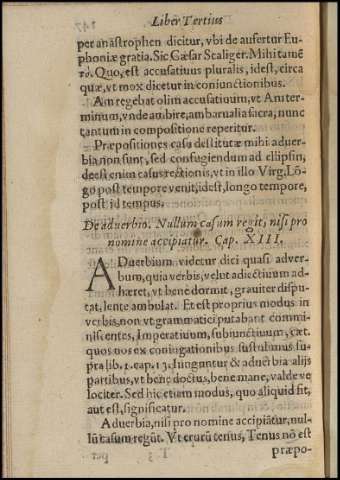 Liber Tertius
per anastrophen dicitur, vbi de aufertur Eu-
phoniæ gratia. Sic Cæsar Scaliger. Mihi tamē
τὸ. Quo, est accusatiuus pluralis, idest, circa
quæ, vt mox dicetur in coniunctionibus.
Am regebat olim accusatiuum, vt Am ter-
minum, vnde ambire, ambarualia sacra, nunc
tantum in compositione reperitur.
Præpositiones casu destitutæ mihi aduer-
bia non sunt, sed confugiendum ad ellipsin,
deest enim casus rectionis, vt in illo Virg. Lōgo
post tempore venit, idest, longo tempore,
post id tempus.
De aduerbio. Nullum casum regit, nisi pro
nomine accipiatur. Cap. XIII.
ADuerbium videtur dici quasi adver-
bum, quia verbis, velut adiectiuum ad-
hæret, vt bene dormit, grauiter dispu-
tat, lente ambulat. Et est proprius modus in
verbis, non vt grammatici putabant commi-
niscentes, Imperatiuum, subiunctiuum, cæt.
quos nos ex coniugationibus sustulimus su-
pra lib. 1. cap. 13. Iunguntur & aduerbia alijs
partibus, vt bene doctus, bene mane, valde ve
lociter. Sed hic etiam modus, quo aliquid fit,
aut est, significatur.
Aduerbia, nisi pro nomine accipiātur, nul-
lū casum regūt. Vt crurū tenus, Tenus nō est
præpo-